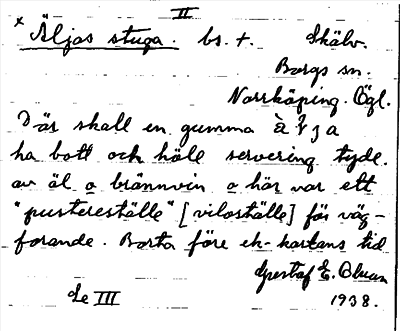 II
x Äljas stuga. bs. +. Skälv.
Borgs sn.
Norrköping. Ögl.
Där skall en gumma
ha bott och höll servering tyde.
av äl o brännvin o här var ett
"pustereställe" [viloställe] för väg-
farande. Borta före ek-kartans tid
Gustaf E.
Se III 1938.